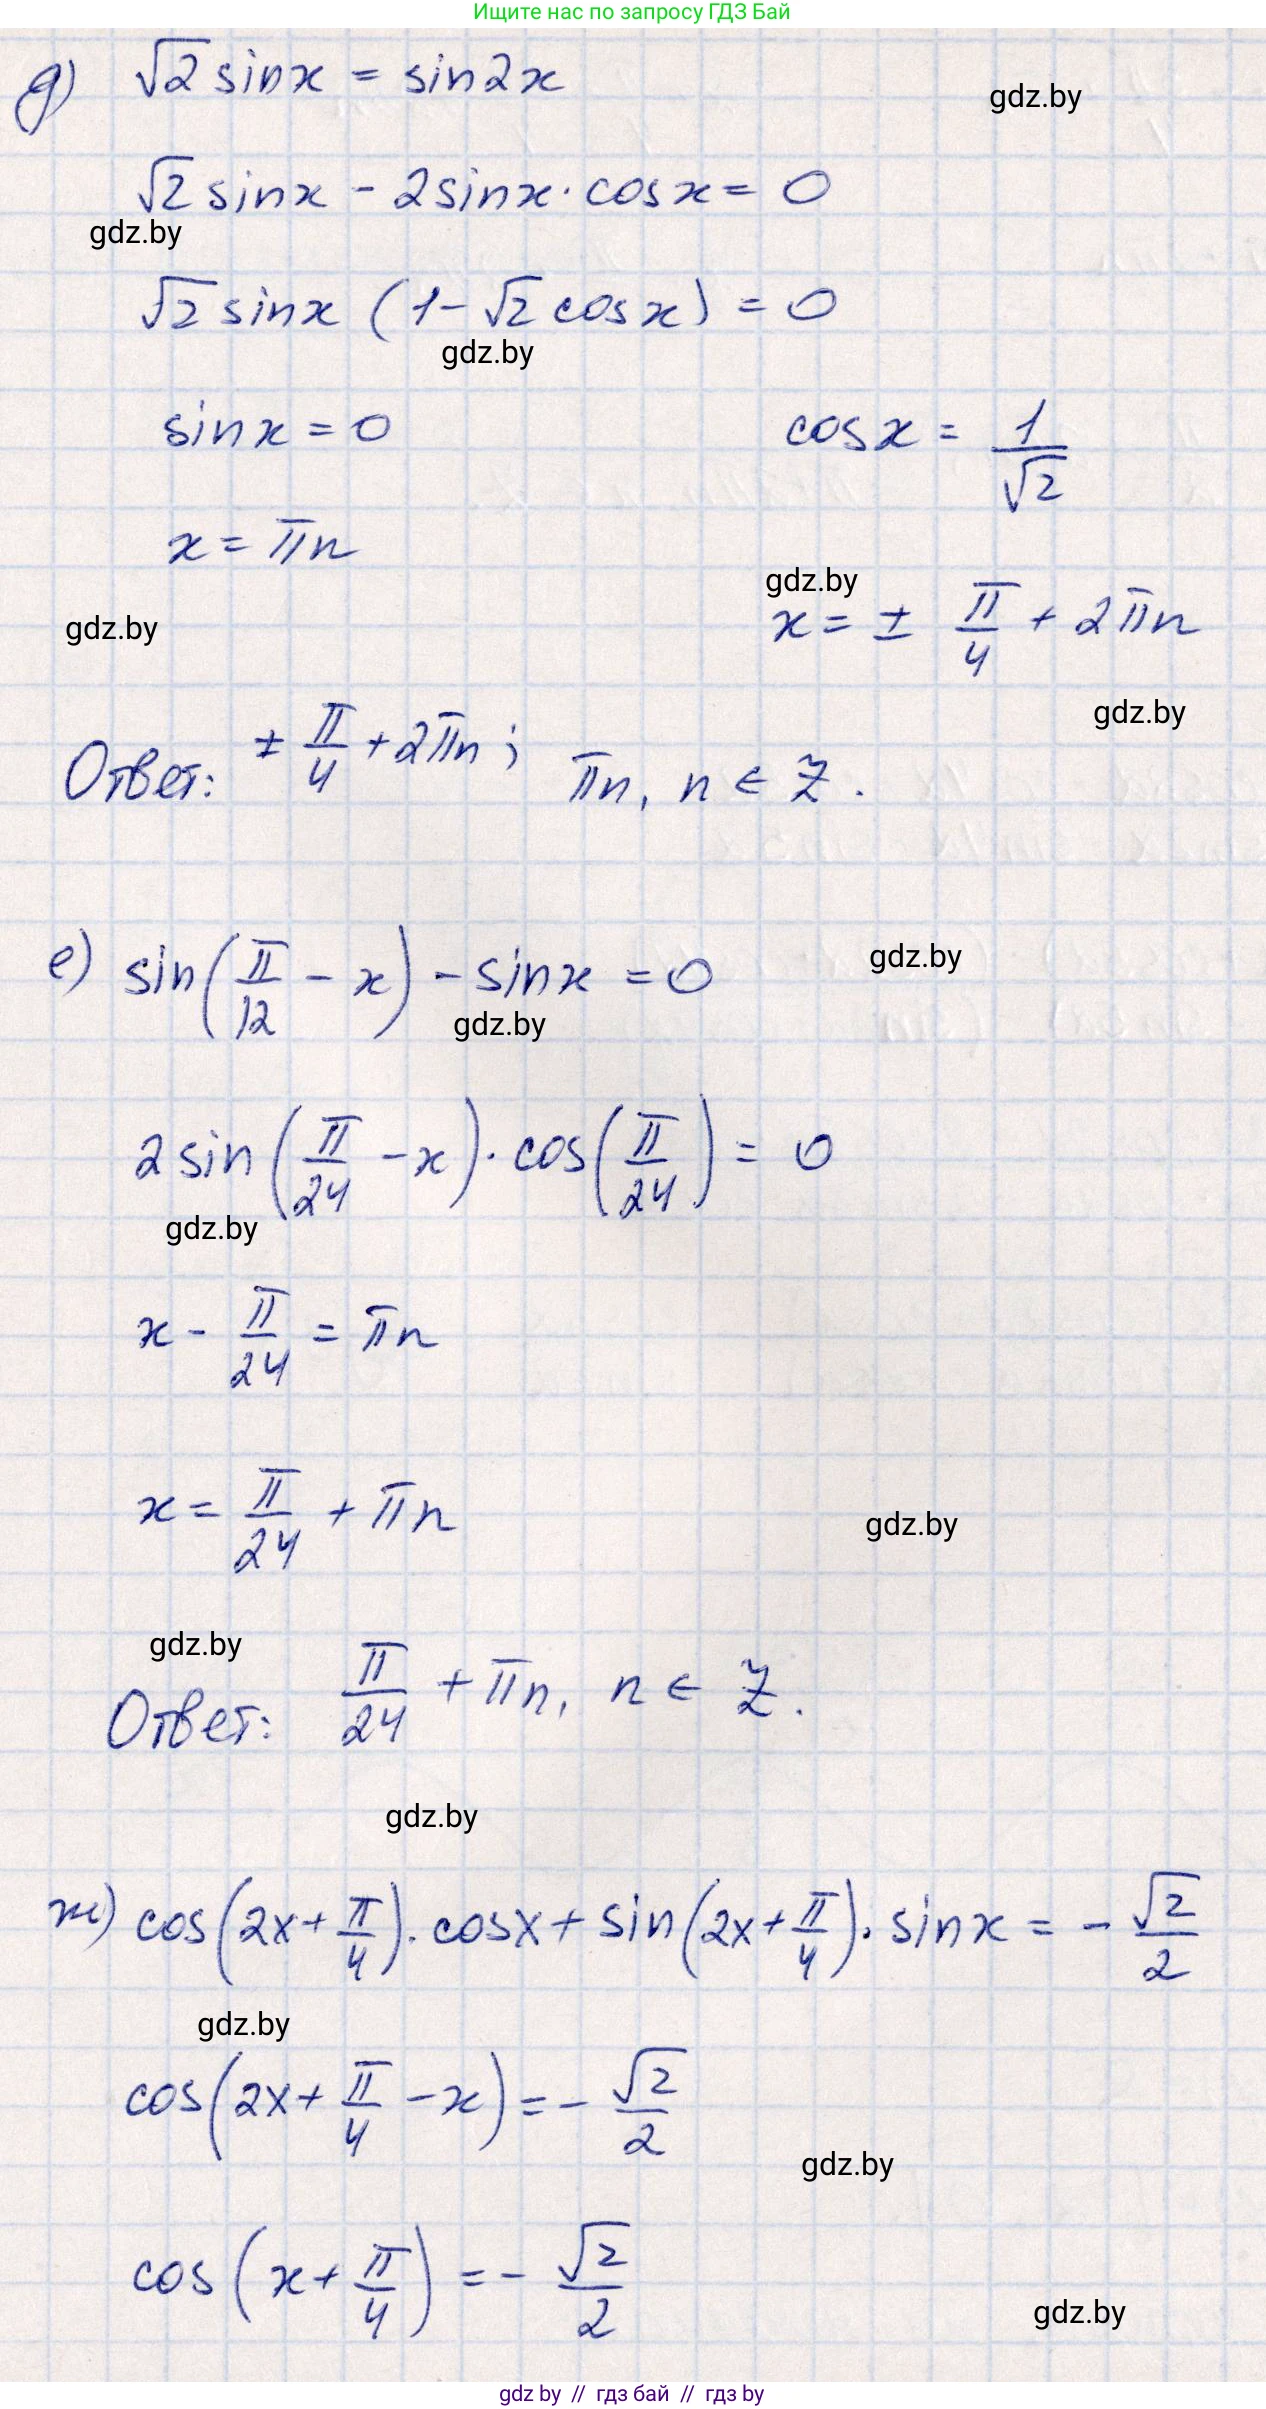 Ищите нас по запросу ГДЗ Бай
д) √2 sinx = sin2x
gdz.by
√2 sinx - 2sinx · cosx = 0
gdz.by
√2 sinx (1 - √2 cosx) = 0
gdz.by
sinx = 0 cosx = 1/√2
x = πn
gdz.by
x = ± π/4 + 2πn
gdz.by
gdz.by
Ответ: ± π/4 + 2πn; πn, n ∈ Z.
е) sin(π/12 - x) - sinx = 0
gdz.by
gdz.by
2 sin(π/24 - x) · cos(π/24) = 0
gdz.by
x - π/24 = πn
x = π/24 + πn
gdz.by
gdz.by
Ответ: π/24 + πn, n ∈ Z.
gdz.by
ж) cos(2x + π/4) · cosx + sin(2x + π/4) · sinx = - √2/2
gdz.by
cos(2x + π/4 - x) = - √2/2
gdz.by
cos(x + π/4) = - √2/2
gdz.by
gdz by // гдз бай // гдз by